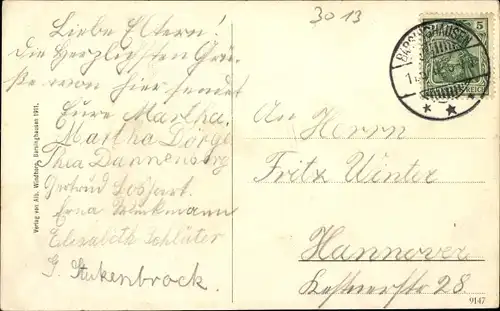 3013
Liebe Eltern!
Die herzlichsten Grü-
ße von hier sendet
Eure Martha.
Martha Dörge
Thea Dannenberg
Gertrud
Erna Winkmann
Elisabeth Schlüter
G. Stukenbrock.
Verlag von Alb. Windhorn, Barsinghausen 1911.
BARSINGHAUSEN
5
An Herrn
Fritz Winter
Hannover
28.
9147